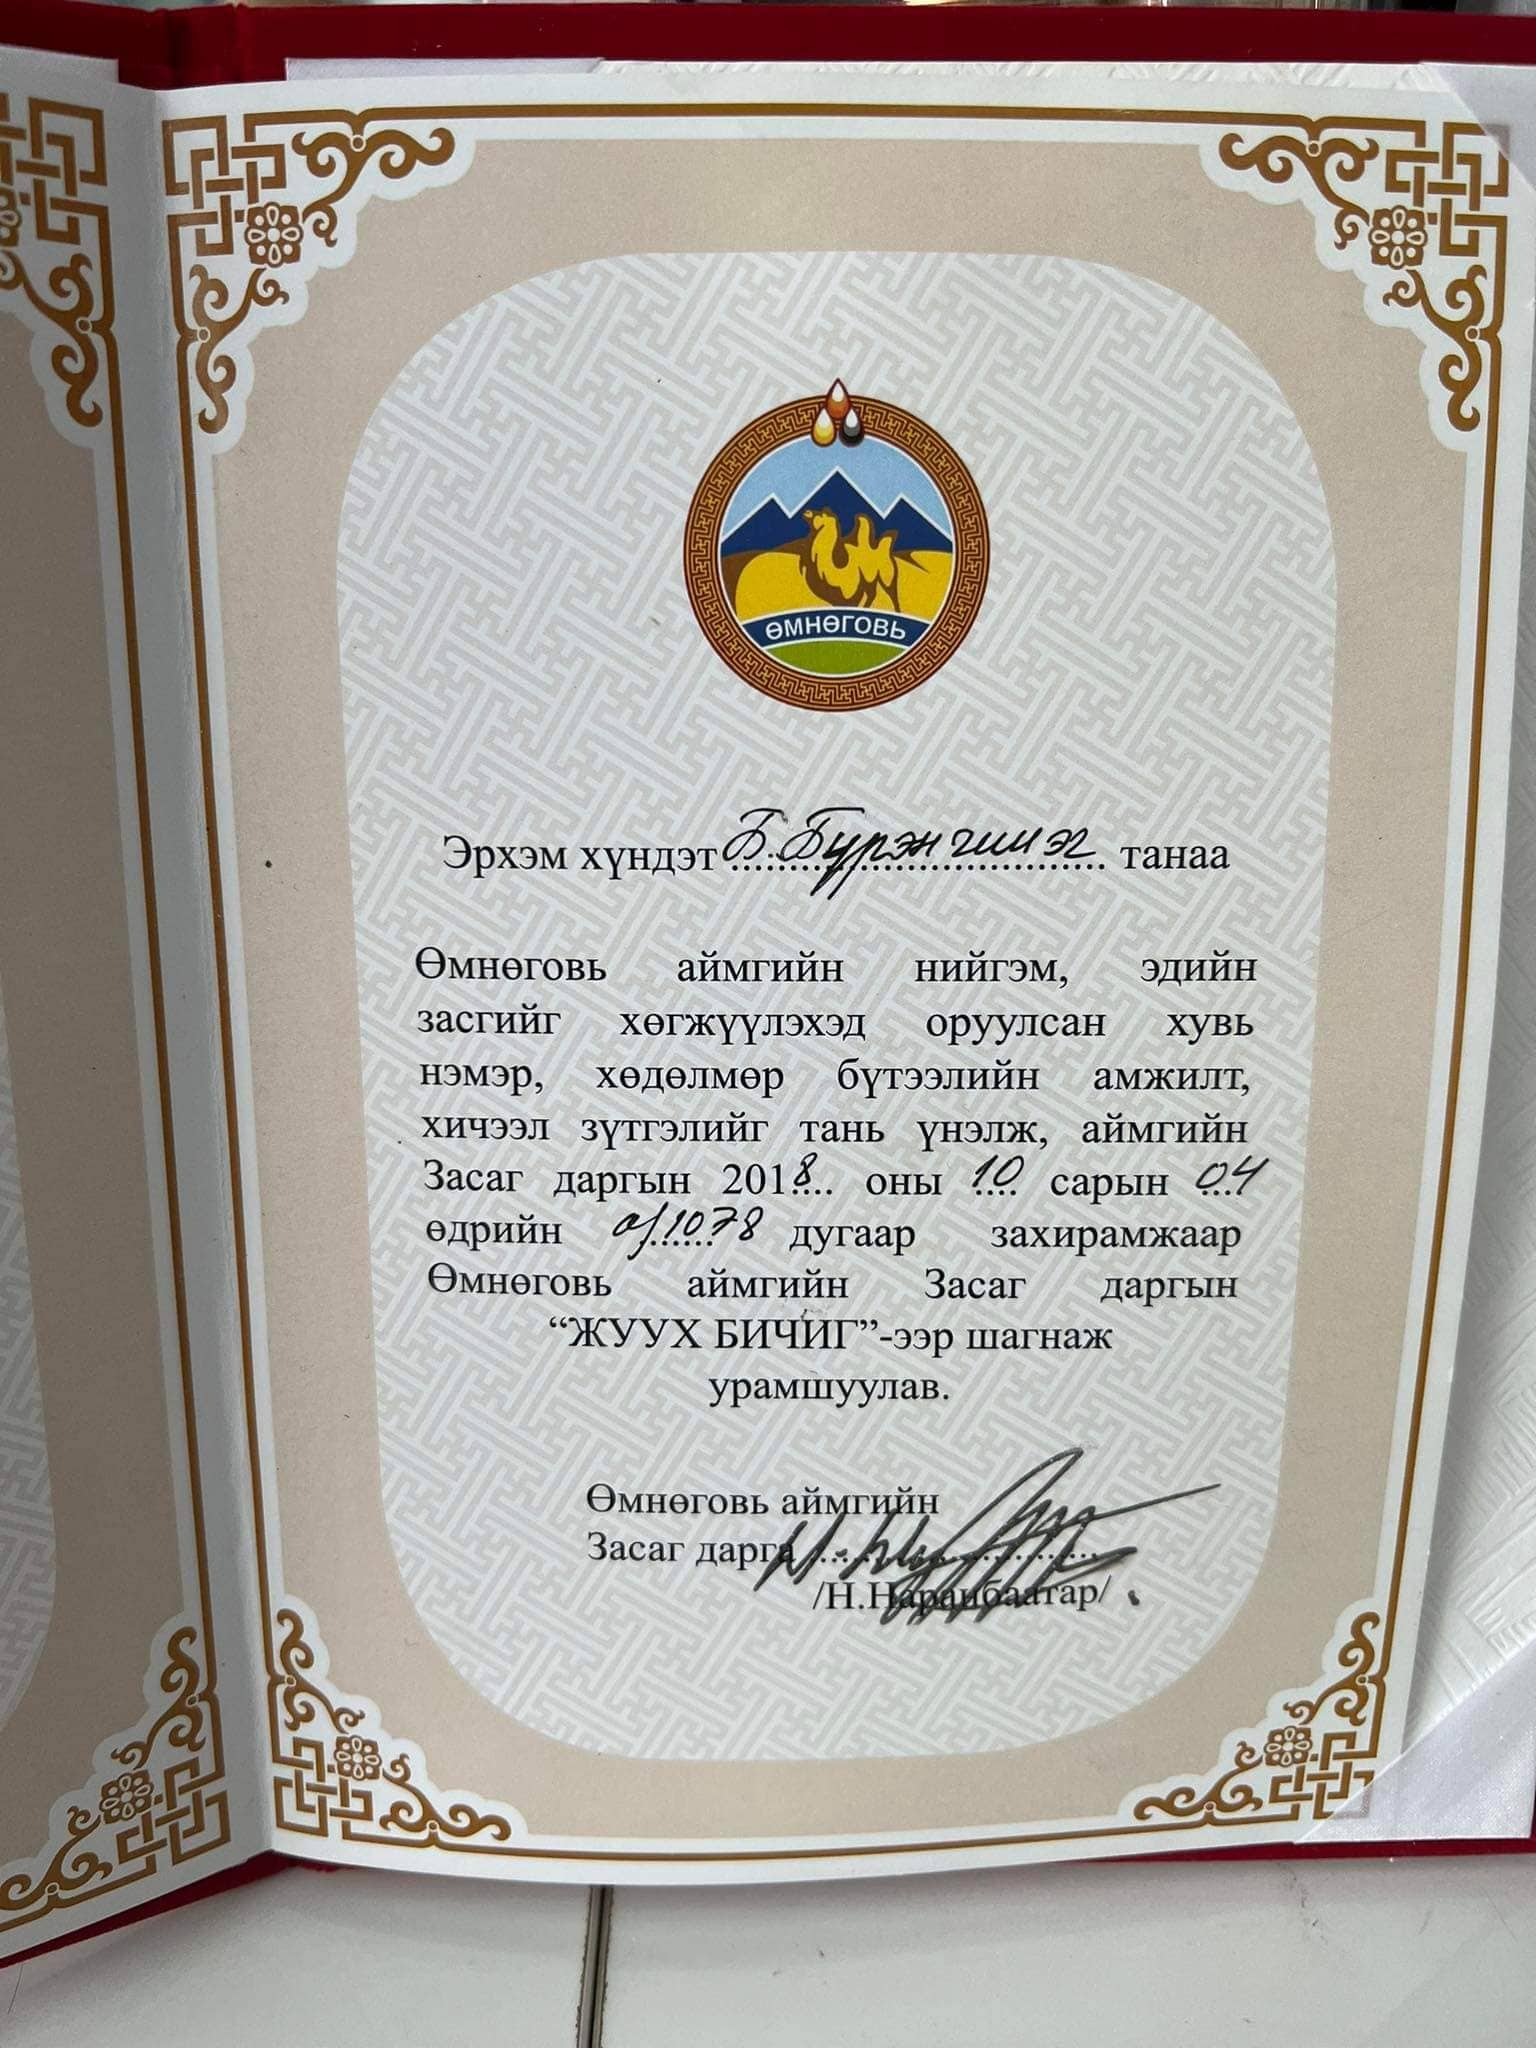 ӨМНӨГОВЬ
Эрхэм хүндэт Б.Бүрэнгишэг танаа
Өмнөговь аймгийн нийгэм, эдийн
засгийг хөгжүүлэхэд оруулсан хувь
нэмэр, хөдөлмөр бүтээлийн амжилт,
хичээл зүтгэлийг тань үнэлж, аймгийн
Засаг даргын 2018.... оны 10 сарын 04
өдрийн а/1078 дугаар захирамжаар
Өмнөговь аймгийн Засаг даргын
“ЖУУХ БИЧИГ”-ээр шагнаж
урамшуулав.
Өмнөговь аймгийн
Засаг дарга
/Н.Наранбаатар/